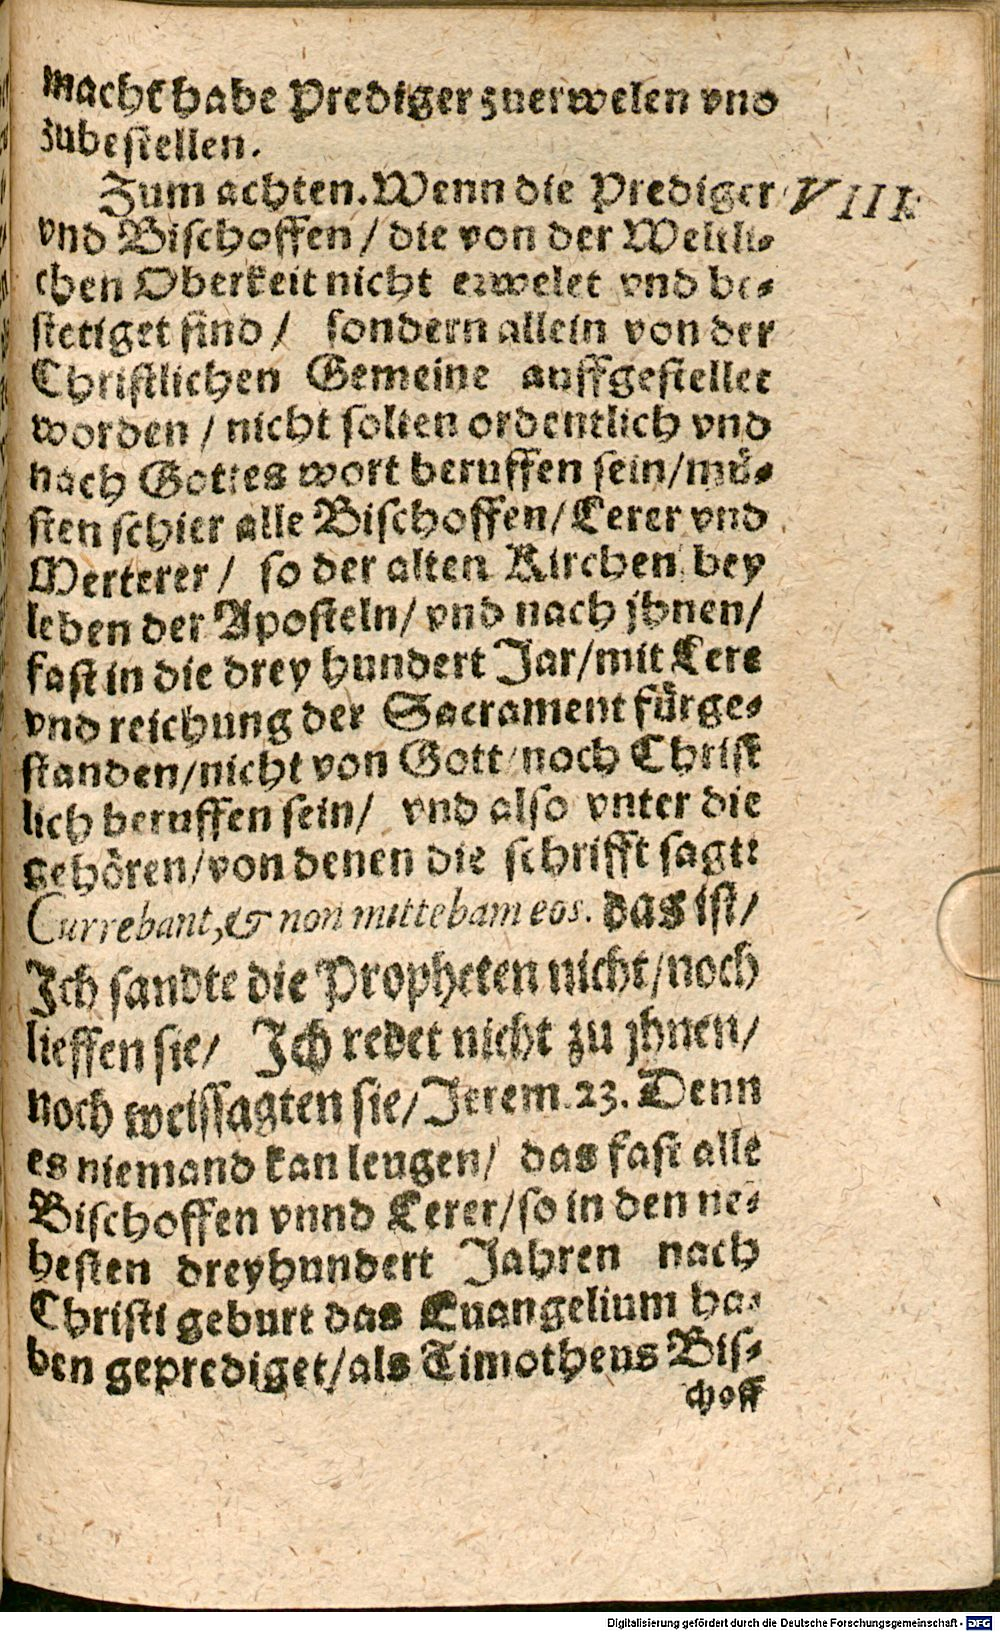 macht habe Prediger zuerwelen vnd
zubestellen.
Zum achten. Wenn die Prediger VIII.
vnd Bischoffen / die von der Weltli⸗
chen Oberkeit nicht erwelet vnd be⸗
stetiget sind / sondern allein von der
Christlichen Gemeine auffgestellet
worden / nicht solten ordentlich vnd
nach Gottes wort beruffen sein / mü⸗
sten schier alle Bischoffen / Lerer vnd
Merterer / so der alten Kirchen bey
leben der Aposteln / vnd nach jhnen /
fast in die drey hundert Jar / mit Lere
vnd reichung der Sacrament fürge⸗
standen / nicht von Gott / noch Christ
lich beruffen sein / vnd also vnter die
gehören / von denen die schrifft sagt:
Currebant, & non mittebam eos. das ist /
Ich sandte die Propheten nicht / noch
lieffen sie / Ich redet nicht zu jhnen /
noch weissagten sie / Jerem. 23. Denn
es niemand kan leugen / das fast alle
Bischoffen vnnd Lerer / so in den ne⸗
hesten dreyhundert Jahren nach
Christi geburt das Euangelium ha⸗
ben geprediget / als Timotheus Bis⸗
choff
Digitalisierung gefördert durch die Deutsche Forschungsgemeinschaft - DFG